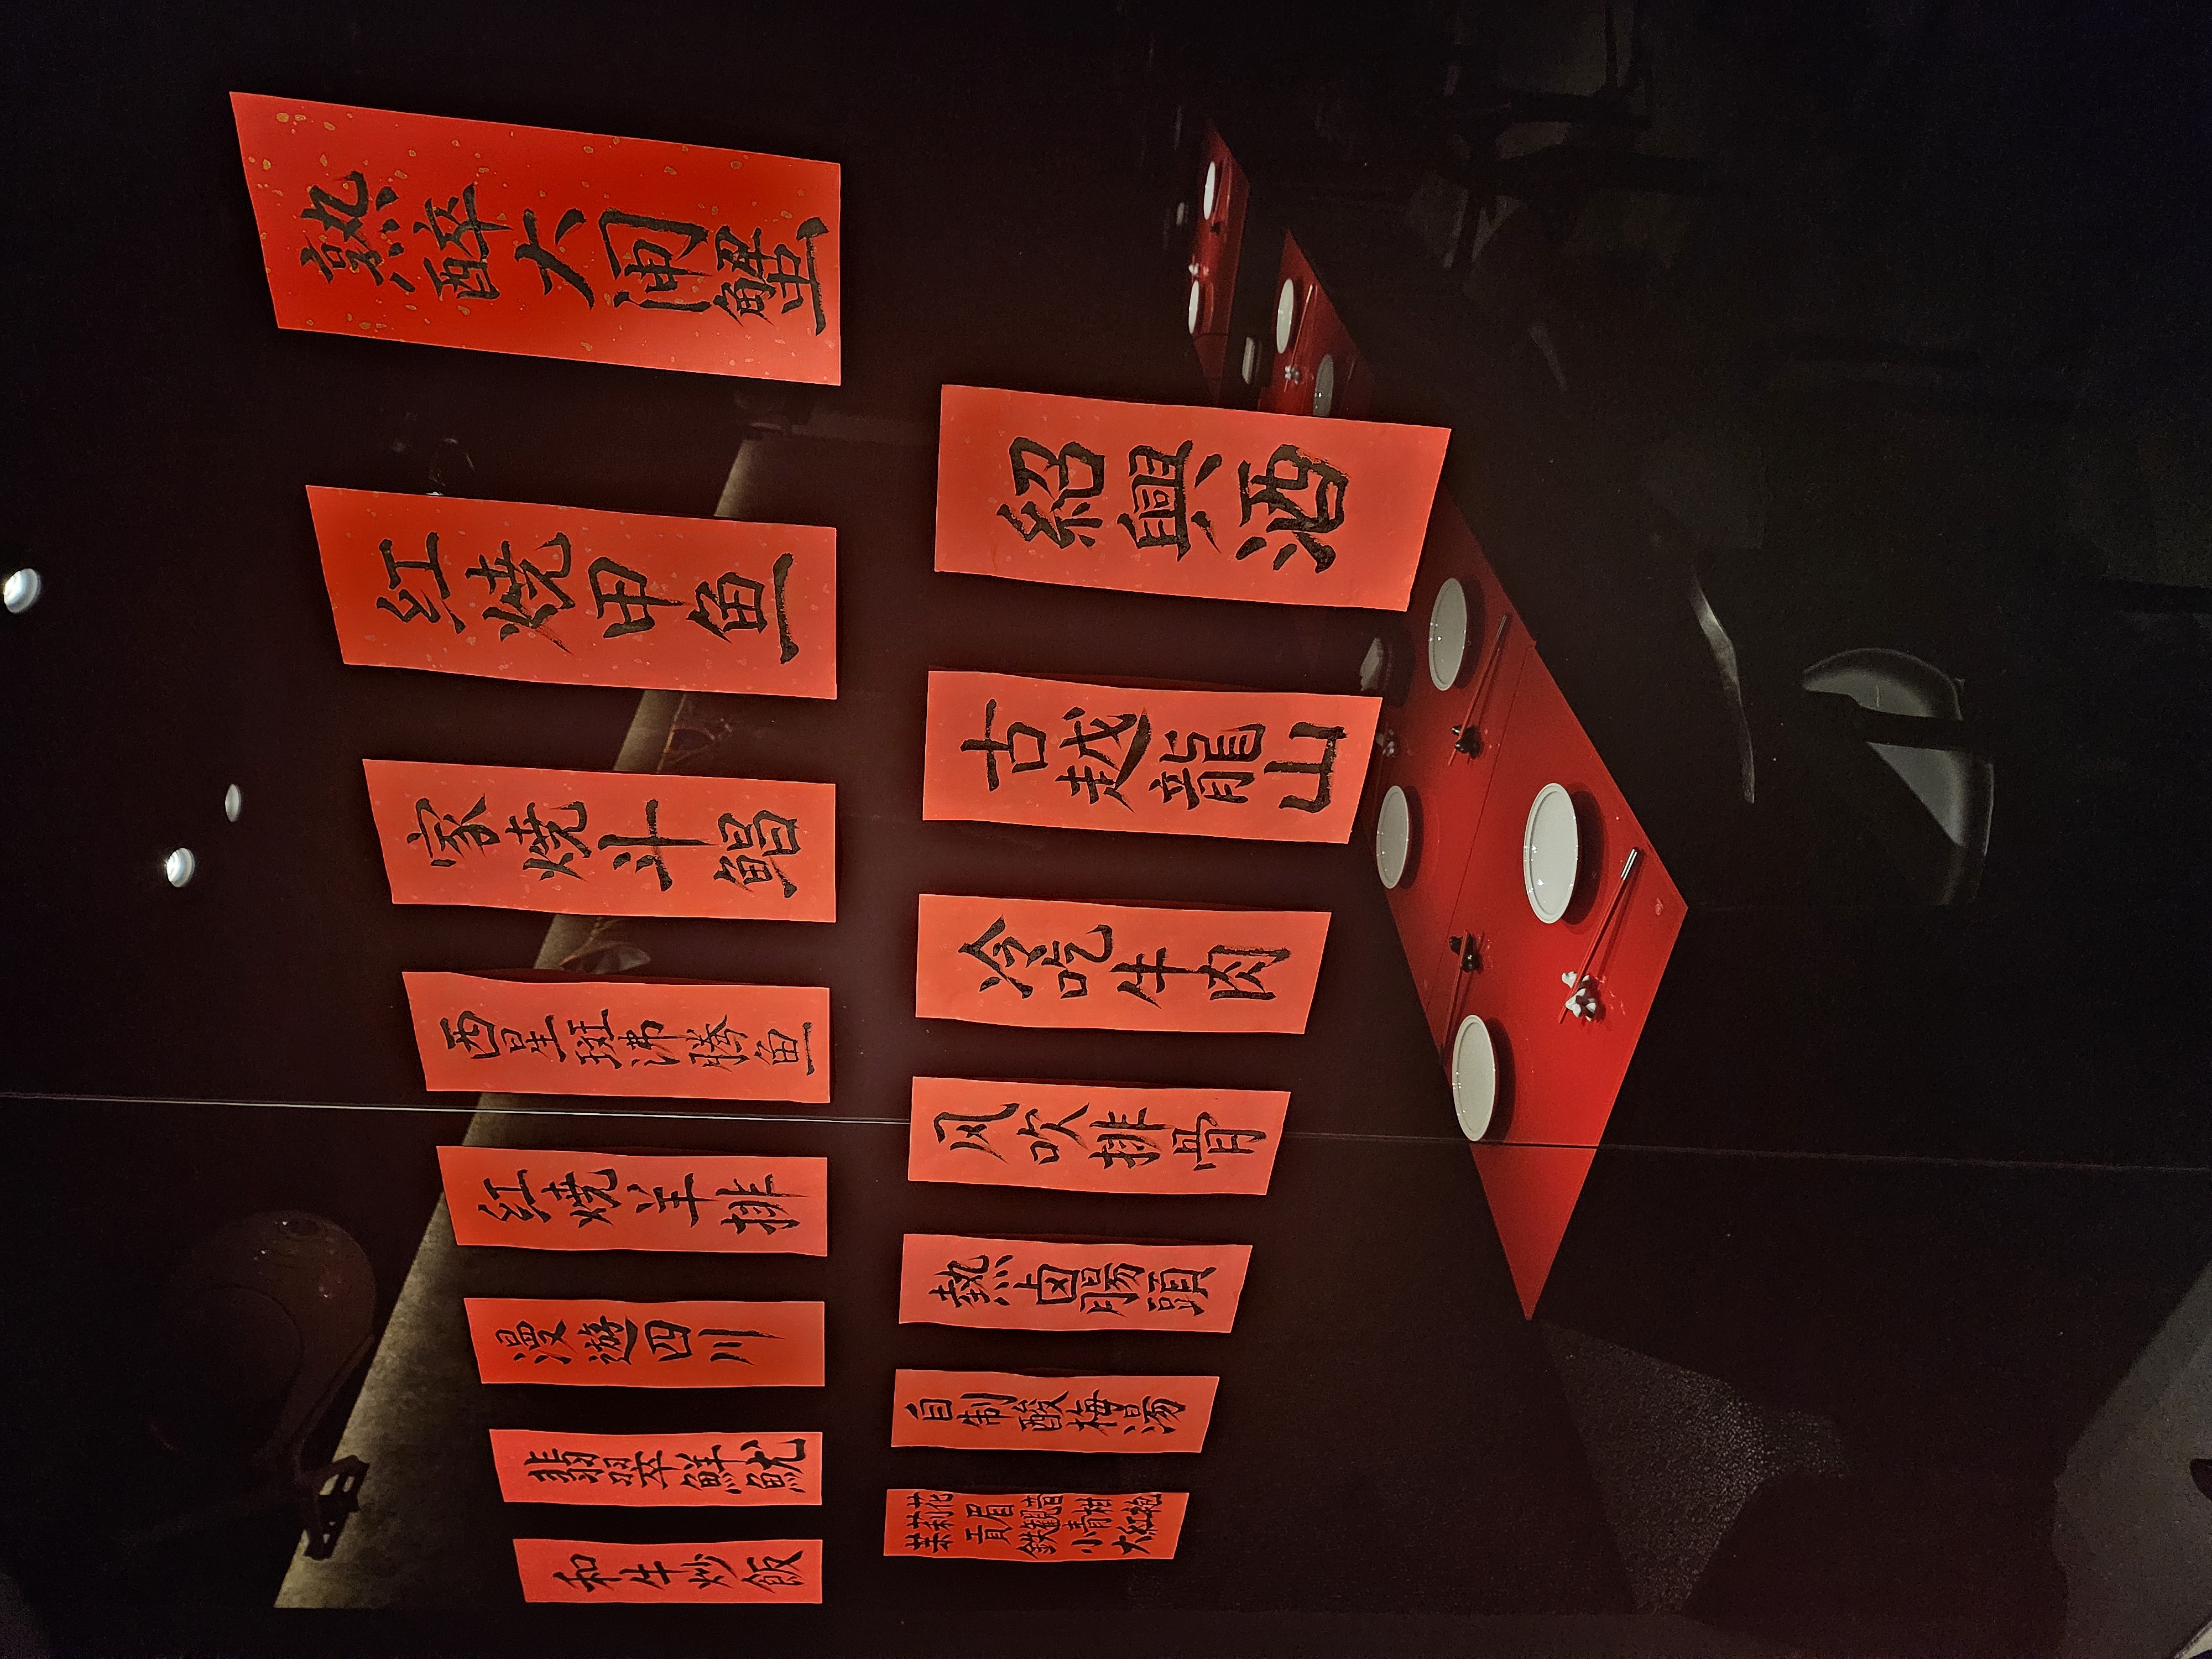 熟醉大闸蟹
紅燒甲鱼
家燒斗鯧
西星斑沸騰鱼
紅燒羊排
漫遊四川
翡翠鮮魷
和牛炒飯
紹興酒
古越龍山
冷吃牛肉
风吹排骨
熱卤腸頭
自制酸梅湯
茉莉花
貢眉
鉄観音
小青柑
大紅袍